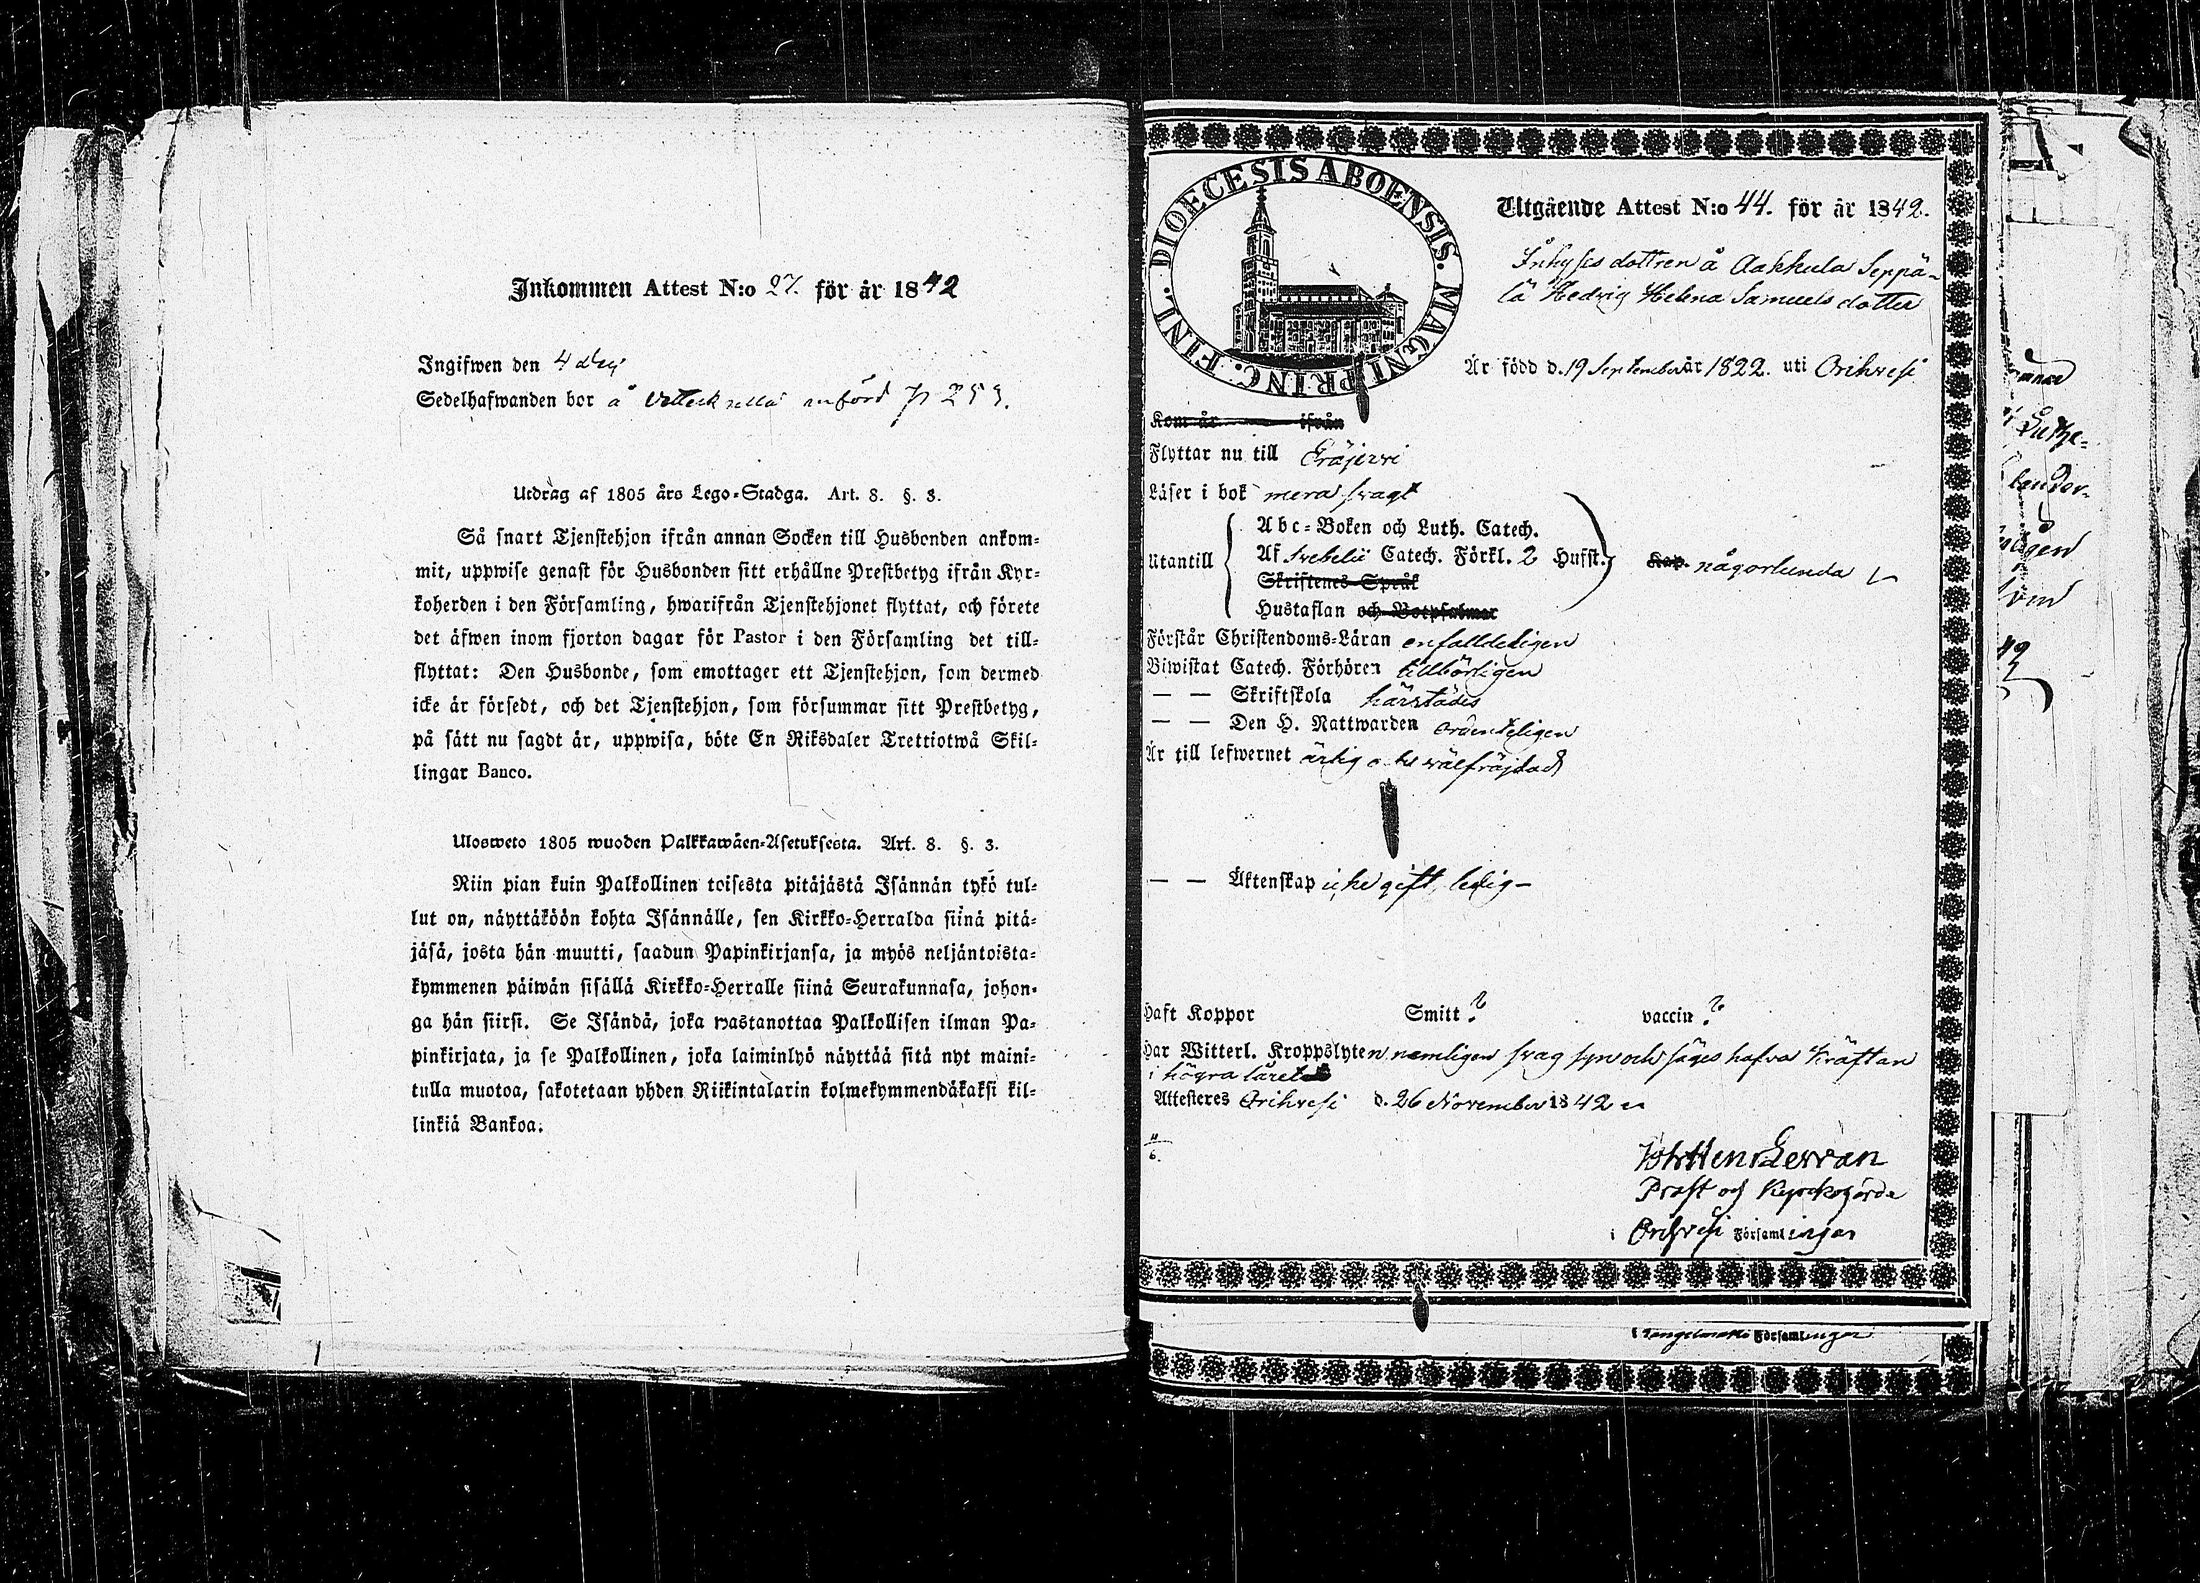 Inkommen Attest N:o 27. för år 1842
Ingifwen den 4
Sedelhafwanden bor å anförd p 253.
Utdrag af 1805 års Lego-Stadga. Art. 8. §. 3.
Så snart Tjenstehjon ifrån annan Socken till Husbonden ankom-
mit, uppwise genast för Husbonden sitt erhållne Prestbetyg ifrån Kyr-
koherden i den Församling, hwarifrån Tjenstehjonet flyttat, och förete
det äfwen inom fjorton dagar för Pastor i den Församling det till-
flyttat: Den Husbonde, som emottager ett Tjenstehjon, som dermed
icke är försedt, och det Tjenstehjon, som försummar sitt Prestbetyg,
på sätt nu sagdt är, uppwisa, böte En Riksdaler Trettiotwå Skil-
lingar Banco.
Ulosweto 1805 wuoden Palkkawäen-Asetuksesta. Art. 8. §. 3.
Niin pian kuin Palkollinen toisesta pitäjästä Isännän tykö tul-
lut on, näyttäköön kohta Isännälle, sen Kirkko-Herralda siinä pitä-
jäsä, josta hän muutti, saadun Papinkirjansa, ja myös neljäntoista-
kymmenen päiwän sisällä Kirkko-Herralle siinä Seurakunnasa, johon-
ga hän siirsi. Se Isändä, joka wastanottaa Palkollisen ilman Pa-
pinkirjata, ja se Palkollinen, joka laiminlyö näyttää sitä nyt maini-
tulla muotoa, sakotetaan yhden Riikintalarin kolmekymmendäkaksi kil-
linkiä Bankoa.
DIOECESIS ABOENSIS. MAGNI PRINC. FINL.
Utgående Attest N:o 44. för år 1842.
Inhyses dottren å Aakkula Seppä-
lä Hedvig Helena Samuelsdotter
Är född d. 19 September år 1822. uti Orihvesi
Kom år ifrån
Flyttar nu till Eräjervi
Läser i bok mera svagt
Utantill
Abc-Boken och Luth. Catech.
Af Svebelii Catech. Förkl. 2 Hufst.
Skriftenes Språk
Hustaflan och Botpsalmer
Kap. någorlunda
Förstår Christendoms-Läran enfalldeligen
Biwistat Catech. Förhören tillbörligen
— — Skriftskola härstädes
— — Den H. Nattwarden ordenteligen
Är till lefwernet ärlig och välfräjdad
— — Äktenskap icke gift, ledig —
Haft Koppor Smitt? vaccin?
Har Witterl. Kroppslyten nemligen svag syn och säges hafva Kräftan
i högra låret
Attesteres Orihvesi d. 26 November 1842
Joh Henr Lewan
Prost och Kyrckoherde
i Orihvesi Församlingar
i Tengelmäki Församlingar